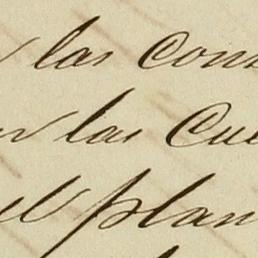 las con
las Cue
el plan